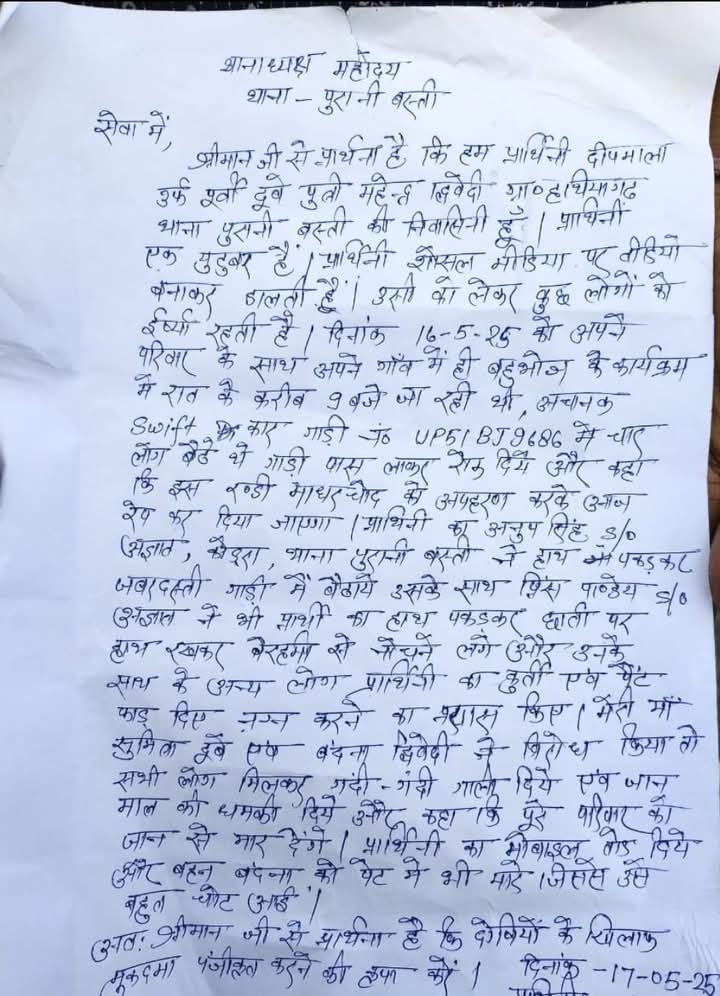 थानाध्यक्ष महोदय
थाना - पुरानी बस्ती
सेवा में,
श्रीमान जी से प्रार्थना है कि हम प्रार्थिनी दीपमाला
उर्फ पूर्वी दूबे पुत्री महेन्द्र द्विवेदी ग्रा० हथियागढ
थाना पुरानी बस्ती की निवासिनी हूँ | प्रार्थिनी
एक युटुबर है | प्रार्थिनी शोसल मीडिया पर वीडियो
बनाकर डालती हूँ | उसी को लेकर कुछ लोगों को
ईर्ष्या रहती है | दिनांक 16-5-25 को अपने
परिवार के साथ अपने गाँव में ही बहुभोज के कार्यक्रम
में रात के करीब 9 बजे जा रही थी, अचानक
swift कार गाड़ी नं० UP51BJ9686 में चार
लोग बैठे थे गाड़ी पास लाकर रोक दिये और कहा
कि इस रण्डी माधरचोद को अपहरण करके आज
रेप कर दिया जाएगा | प्रार्थिनी का अनुप सिंह s/o
अज्ञात, थाना पुरानी बस्ती ने हाथ पकड़कर
जबरदस्ती गाड़ी में बैठाये उसके साथ प्रिंस पाण्डेय s/o
अज्ञात ने भी प्रार्थी का हाथ पकड़कर छाती पर
हाथ रखकर बेरहमी से नोचने लगे और उनके
साथ के अन्य लोग प्रार्थिनी का कुर्ती एवं पैंट
फाड़ दिए नग्न करने का प्रयास किए | मेरी माँ
सुमित्रा दूबे एवं बंदना द्विवेदी ने विरोध किया तो
सभी लोग मिलकर गंदी-गंदी गाली दिये एवं जान
माल की धमकी दिये और कहा कि पूरे परिवार को
जान से मार देंगे | प्रार्थिनी का मोबाइल तोड दिये
और बहन बंदना को पेट में भी मारे | जिससे उसे
बहुत चोट आई |
अतः श्रीमान जी से प्रार्थना है कि दोषियों के खिलाफ
मुकदमा पंजीकृत करने की कृपा करें | दिनांक -17-05-25